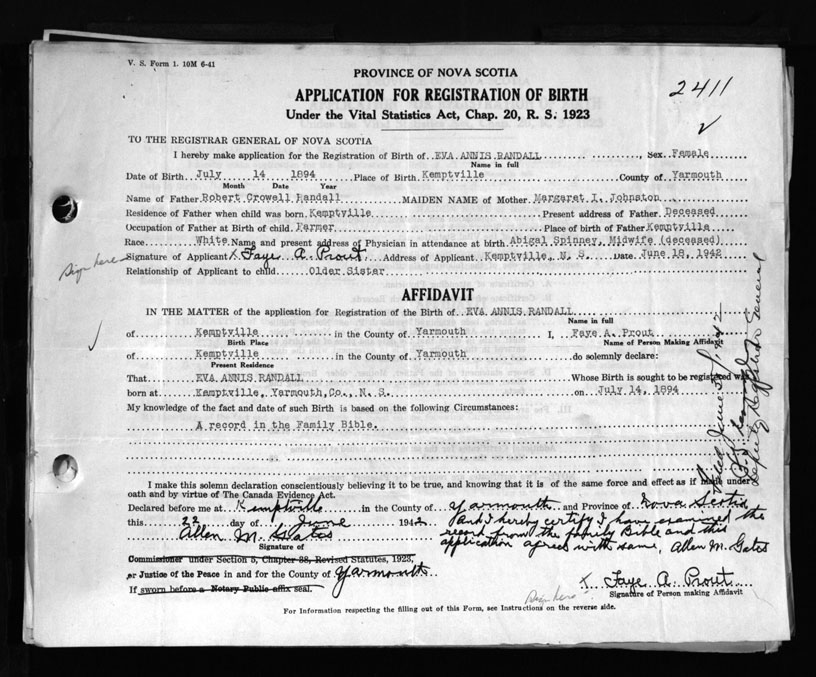 V. S. Form 1. 10M 6-41
PROVINCE OF NOVA SCOTIA
2411
APPLICATION FOR REGISTRATION OF BIRTH
Under the Vital Statistics Act, Chap. 20, R. S. 1923
TO THE REGISTRAR GENERAL OF NOVA SCOTIA
I hereby make application for the Registration of Birth of EVA ANNIS RANDALL, Sex Female
Name in full
Date of Birth July 14 1894 Place of Birth Kemptville County of Yarmouth
Month Date Year
Name of Father Robert Crowell Randall MAIDEN NAME of Mother Margaret I. Johnston
Residence of Father when child was born Kemptville Present address of Father Deceased
Occupation of Father at Birth of child Farmer Place of birth of Father Kemptville
Race White Name and present address of Physician in attendance at birth Abigal Spinney, Midwife (deceased)
Sign here
Signature of Applicant X Faye A. Prout Address of Applicant Kemptville, N. S. Date June 18, 1942
Relationship of Applicant to child Older Sister
AFFIDAVIT
IN THE MATTER of the application for Registration of the Birth of EVA ANNIS RANDALL
Name in full
of Kemptville in the County of Yarmouth I, Faye A. Prout
Birth Place Name of Person Making Affidavit
of Kemptville in the County of Yarmouth do solemnly declare:
Present Residence
That EVA ANNIS RANDALL Whose Birth is sought to be registered was
born at Kemptville, Yarmouth, Co., N. S. on July 14, 1894
My knowledge of the fact and date of such Birth is based on the following Circumstances:
A record in the Family Bible.
I make this solemn declaration conscientiously believing it to be true, and knowing that it is of the same force and effect as if made under
oath and by virtue of The Canada Evidence Act.
Declared before me at Kemptville in the County of Yarmouth and Province of Nova Scotia
this 22 day of June 1942. And I hereby certify I have examined the
record from the family Bible and this
application agrees with same, Allen M. Gates
Allen M. Gates
Signature of
Commissioner under Section 5, Chapter 38, Revised Statutes, 1923,
or Justice of the Peace in and for the County of Yarmouth
If sworn before a Notary Public affix seal.
X Faye A. Prout
Sign here
Signature of Person making Affidavit
For Information respecting the filling out of this Form, see Instructions on the reverse side.
Filed June 1942
Deputy Registrar General